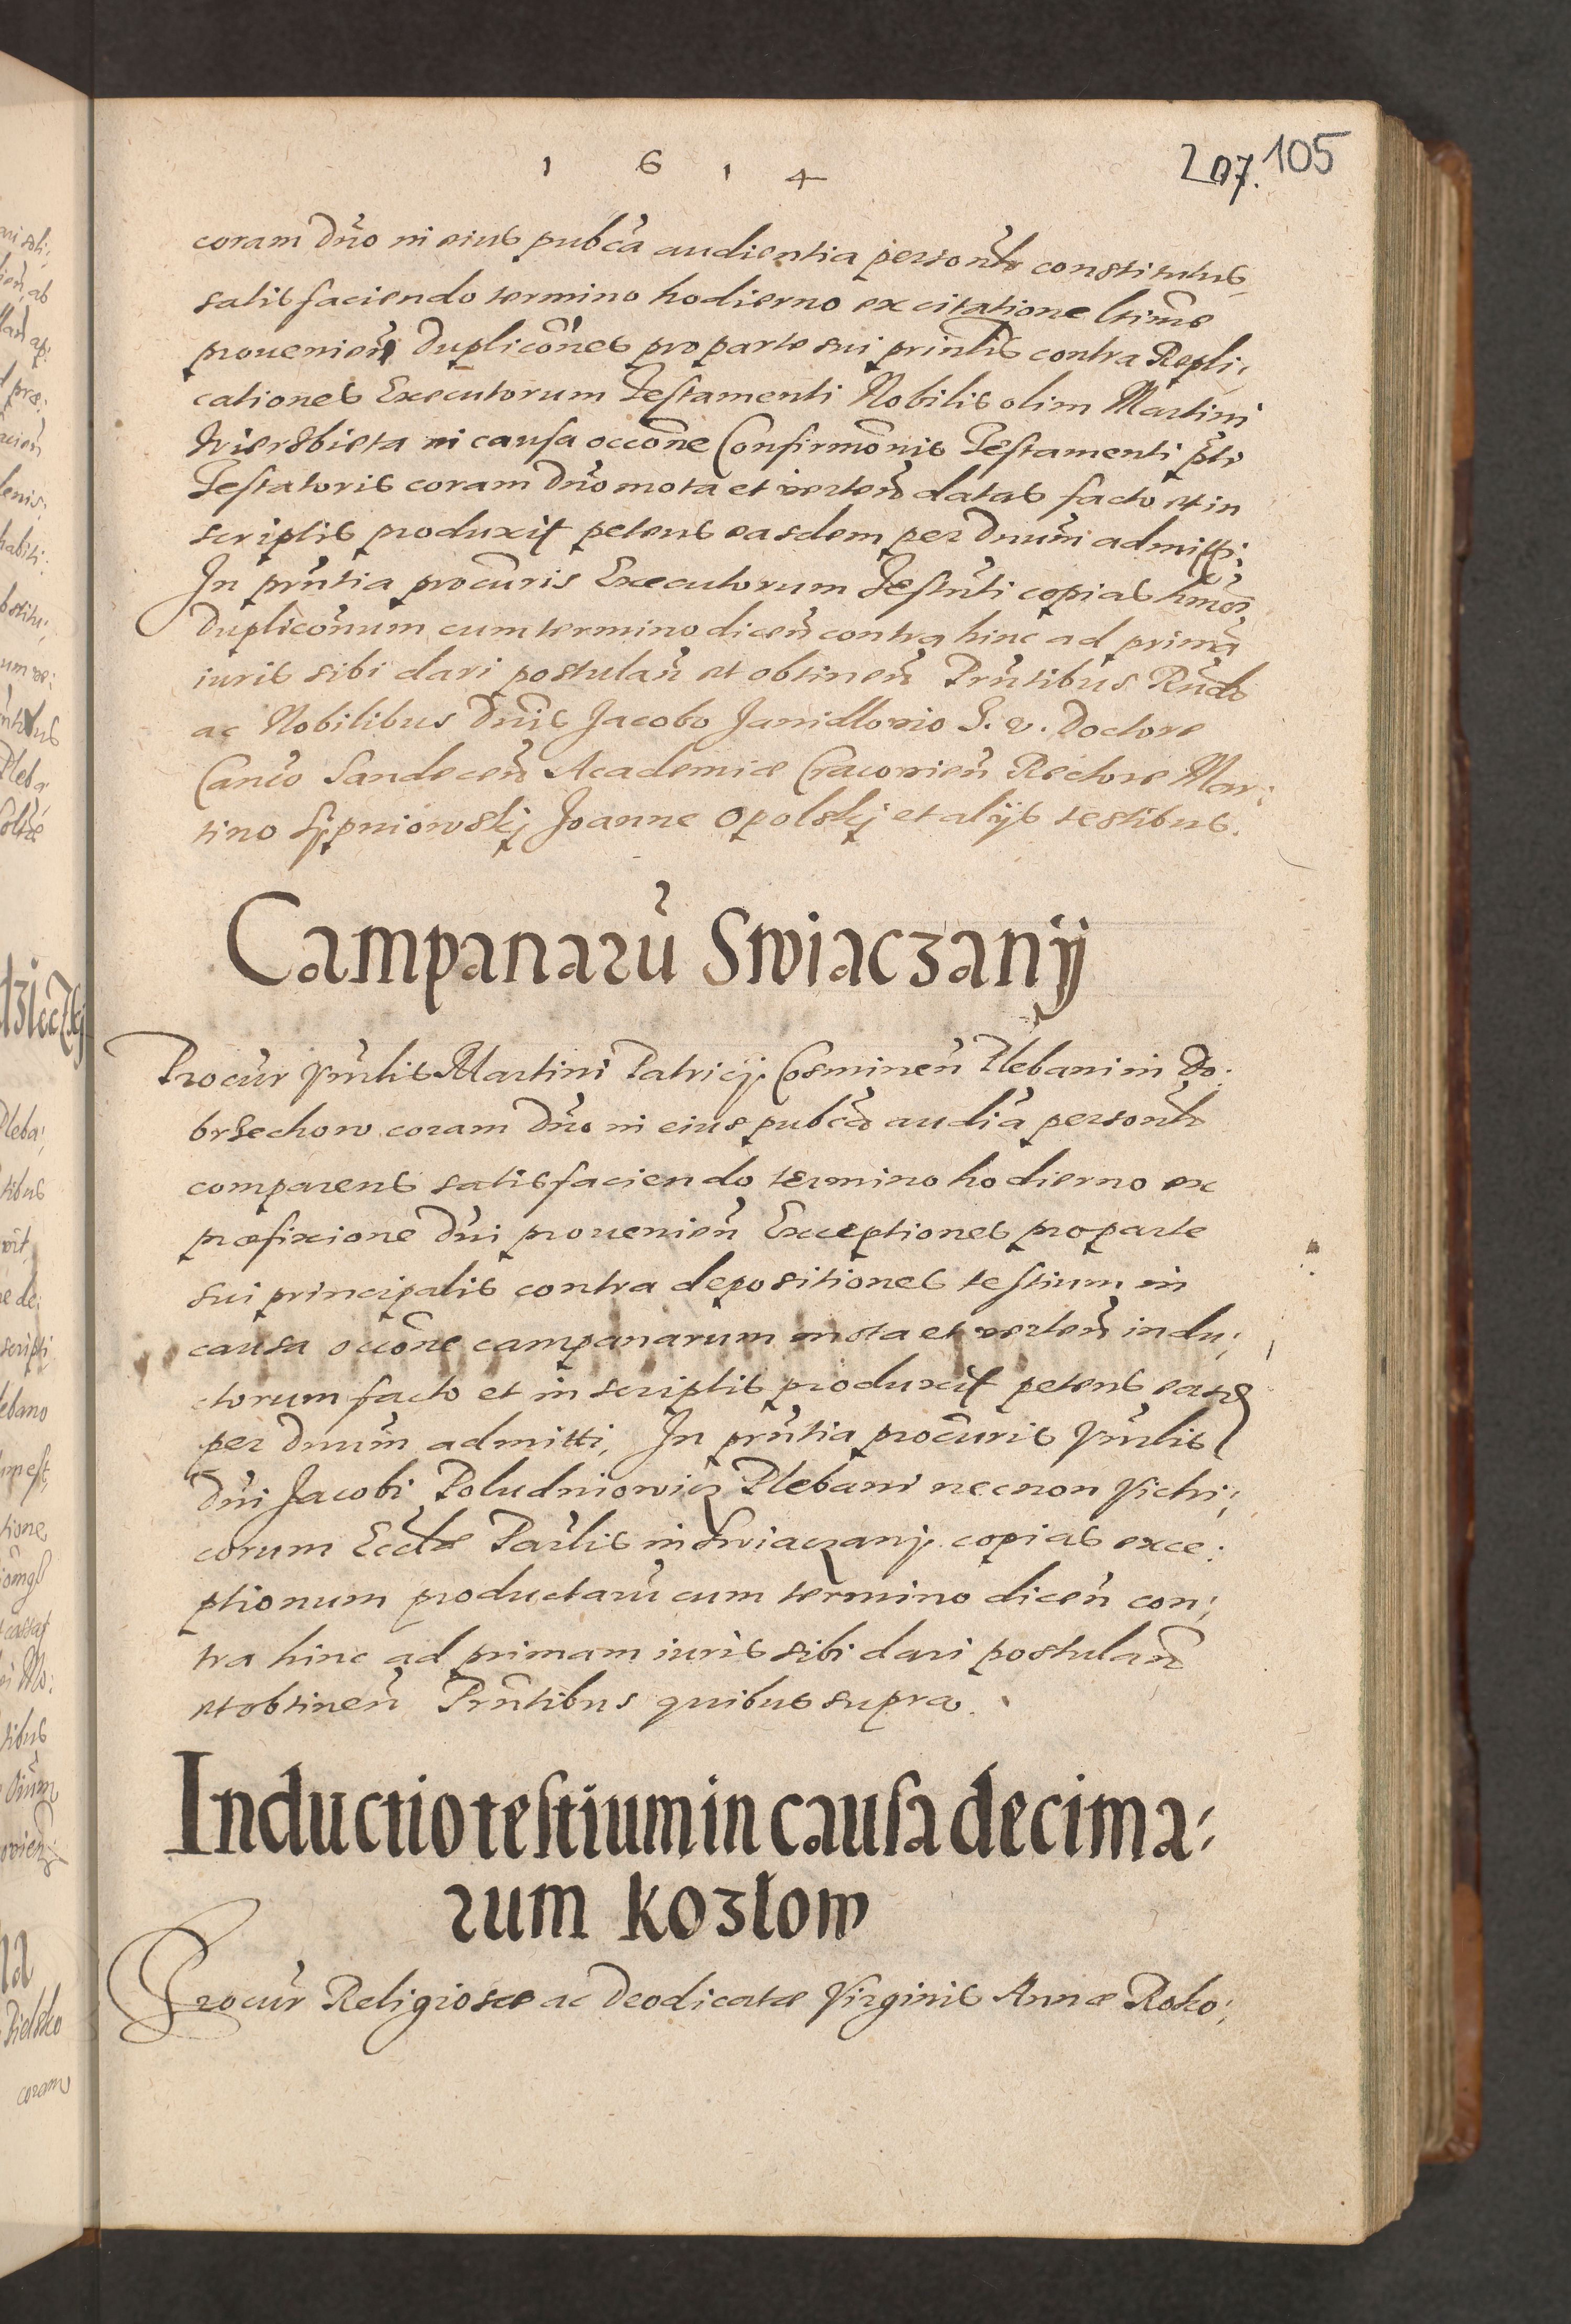 1 6 1 4
207. 105
coram Dno in eius pubca audientia personlr constitutus
satisfaciendo termino hodierno ex citatione ltime
prouenien Duplicones pro parte sui prinlis contra Repli;
cationes Executorum Testamenti Nobilis olim Martini
Wierzbieta in causa occone Confirmonis Testamenti
Testatoris coram Dno mota et verten datas facto et in
scriptis produxit petens easdem per Dnum admitti;
In prntia procuris Executorum Testnti copias hmoi
Dupliconum cum termino dicen contra hinc ad prima
iuris sibi dari postulan et obtinen Prntibus Rndo
ac Nobilibus Dnis Jacobo Janidlovio I. V. Doctore
Canco Sandecen Academiæ Cracovien Rectore Mar;
tino Sypniowskij Joanne Opolskij et alijs testibus.
Campanarū Swiaczanij
Procur Vnrlis Martini Patricij Cosminen Plebani in Do;
brzechow coram Dno in eius pubca audia personlr
comparens satisfaciendo termino hodierno ex
præfixione Dni prouenien Exceptiones pro parte
sui principalis contra depositiones testium in
causa occone campanarum mota et verten indu;
ctorum facto et in scriptis produxit petens easd
per Dnum admitti, In prntia procuris Vnrlis
Dni Jacobi Poludniowicz Plebani necnon Vitri;
corum Eccliæ Parlis in Swiaczanij copias exce;
ptionum productarū cum termino dicen con;
tra hinc ad primam iuris sibi dari postulan
et obtinen Prntibus quibus supra.
Inductio testium in causa decima;
rum Kozlow
Procur Religiosæ ac Deodicatæ Virginis Annæ Roko;